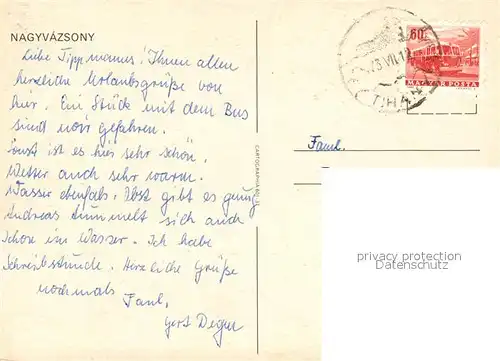 NAGYVÁZSONY
Liebe Tippmanns! Ihnen allen
herzliche Urlaubsgrüße von
hier. Ein Stück mit dem Bus
sind wir gefahren.
Sonst ist es hier sehr schön.
Wetter auch sehr warm.
Wasser ebenfalls. Obst gibt es genug
Andreas tummelt sich auch
schon im Wasser. Ich habe
Schreibstunde. Herzliche Grüße
nochmals
Faml.
Gert
60f
MAGYAR POSTA
TIHANY
Faml.
CARTOGRAPHIA
privacy protection
Datenschutz